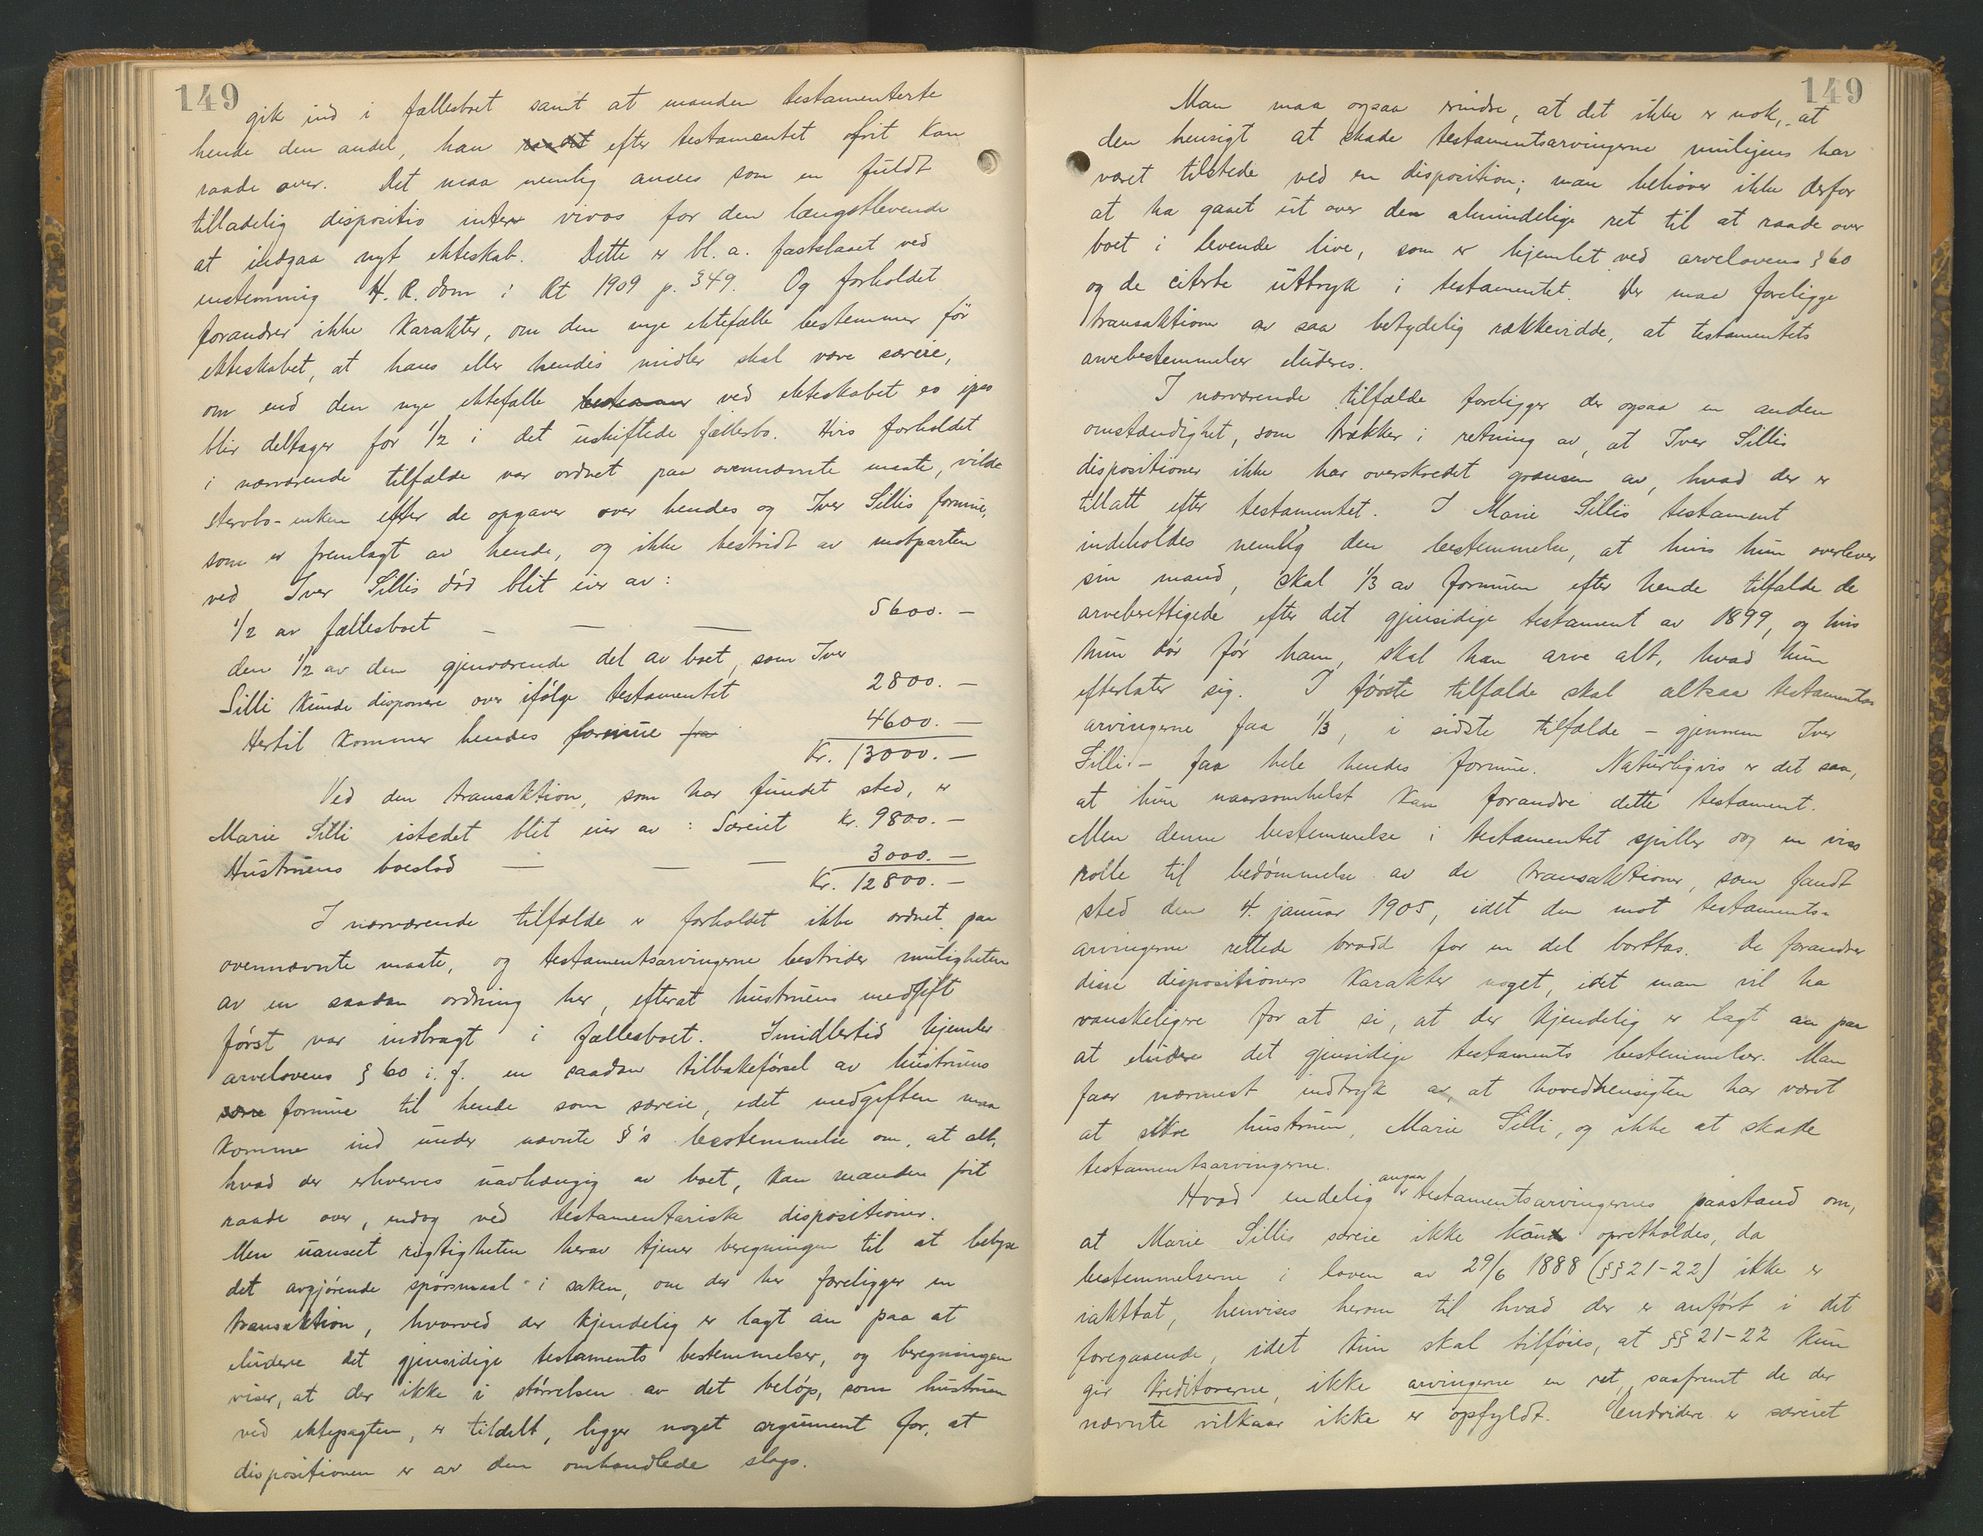 149
gik ind i fællesboet samt at manden testamenterte
hende den andel, han efter testamentet frit kan
raade over. Det maa nemlig ansees som en fuldt
tilladelig dispositio inter vivos for den længstlevende
at indgaa nyt ekteskab. Dette er bl. a. fastslaaet ved
enstemmig H. R. dom i Rt 1909 p. 349. Og forholdet
forandrer ikke karakter, om den nye ektefælle bestemmer før
ekteskabet, at hans eller hendes midler skal være særeie,
om end den nye ektefælle ved ekteskabet eo ipso
blir deltager for 1/2 i det uskiftede fællesbo. Hvis forholdet
i nærværende tilfælde var ordnet paa ovennævnte maate, vilde
stervbo-enken efter de opgaver over hendes og Iver Sillis formue,
som er fremlagt av hende, og ikke bestridt av motparten
ved Iver Sillis død blit eier av:
1/2 av fællesboet — — — 5600. —
den 1/2 av den gjenværende del av boet, som Iver
Silli kunde disponere over ifølge testamentet 2800. —
Hertil kommer hendes formue fra 4600. —
Kr. 13000. —
Ved den transaktion, som har fundet sted, er
Marie Silli istedet blit eier av: Særeiet kr. 9800. —
Hustruens boeslod — — — 3000. —
Kr. 12800. —
I nærværende tilfælde er forholdet ikke ordnet paa
ovennævnte maate, og testamentsarvingerne bestrider muligheten
av en saadan ordning her, efterat hustruens medgift
først var indbragt i fællesboet. Imidlertid hjemler
arvelovens § 60 i. f. en saadan tilbakeførsel av hustruens
formue til hende som særeie, idet medgiften maa
komme ind under nævnte §'s bestemmelse om, at alt,
hvad der erhverves uavhængig av boet, kan manden frit
raade over, endog ved testamentariske dispositioner.
Men uanseet rigtigheten herav tjener beregningen til at belyse
det avgjørende spørsmaal i saken, om der her foreligger en
transaktion, hvorved der kjendelig er lagt an paa at
eludere det gjensidige testaments bestemmelser, og beregningen
viser, at der ikke i størrelsen av det beløp, som hustruen
ved ektepagten er tildelt, ligger noget argument for, at
dispositionen er av den omhandlede slags.
149
Man maa ogsaa erindre, at det ikke er nok, at
den hensigt at skade testamentsarvingerne muligens har
været tilstede ved en disposition; man behøver ikke derfor
at ha gaaet ut over den almindelige ret til at raade over
boet i levende live, som er hjemlet ved arvelovens § 60
og de citerte uttryk i testamentet. Der maa foreligge
transaktioner av saa betydelig rækkevidde, at testamentets
arvebestemmelser eluderes.
I nærværende tilfælde foreligger der ogsaa en anden
omstændighet, som trækker i retning av, at Iver Sillis
dispositioner ikke har overskredet grænsen av, hvad der er
tillatt efter testamentet. I Marie Sillis testament
indeholdes nemlig den bestemmelse, at hvis hun overlever
sin mand, skal 1/3 av formuen efter hende tilfalde de
arveberettigede efter det gjensidige testament av 1899, og hvis
hun dør før ham, skal han arve alt, hvad hun
efterlater sig. I første tilfælde skal altsaa testaments-
arvingerne faa 1/3, i sidste tilfælde – gjennem Iver
Silli – faa hele hendes formue. Naturligvis er det saa,
at hun naarsomhelst kan forandre dette testament.
Men denne bestemmelse i testamentet spiller dog en viss
rolle til bedømmelse av de transaktioner, som fandt
sted den 4. januar 1905, idet den mot testaments-
arvingerne rettede brodd for en del borttas. De forandrer
disse dispositioners karakter noget, idet man vil ha
vanskeligere for at si, at der kjendelig er lagt an paa
at eludere det gjensidige testaments bestemmelser. Man
faar nærmest indtryk av, at hovedhensigten har været
at sikre hustruen, Marie Silli, og ikke at skade
testamentsarvingerne.
Hvad endelig angaar testamentsarvingernes paastand om,
at Marie Sillis særeie ikke kan opretholdes, da
bestemmelserne i loven av 29/6 1888 (§§ 21-22) ikke er
iakttat, henvises herom til hvad der er anført i det
foregaaende, idet kun skal tilføies, at §§ 21-22 kun
gir kreditorerne, ikke arvingerne en ret, saafremt de der
nævnte vilkaar ikke er opfyldt. Endvidere er særeiet